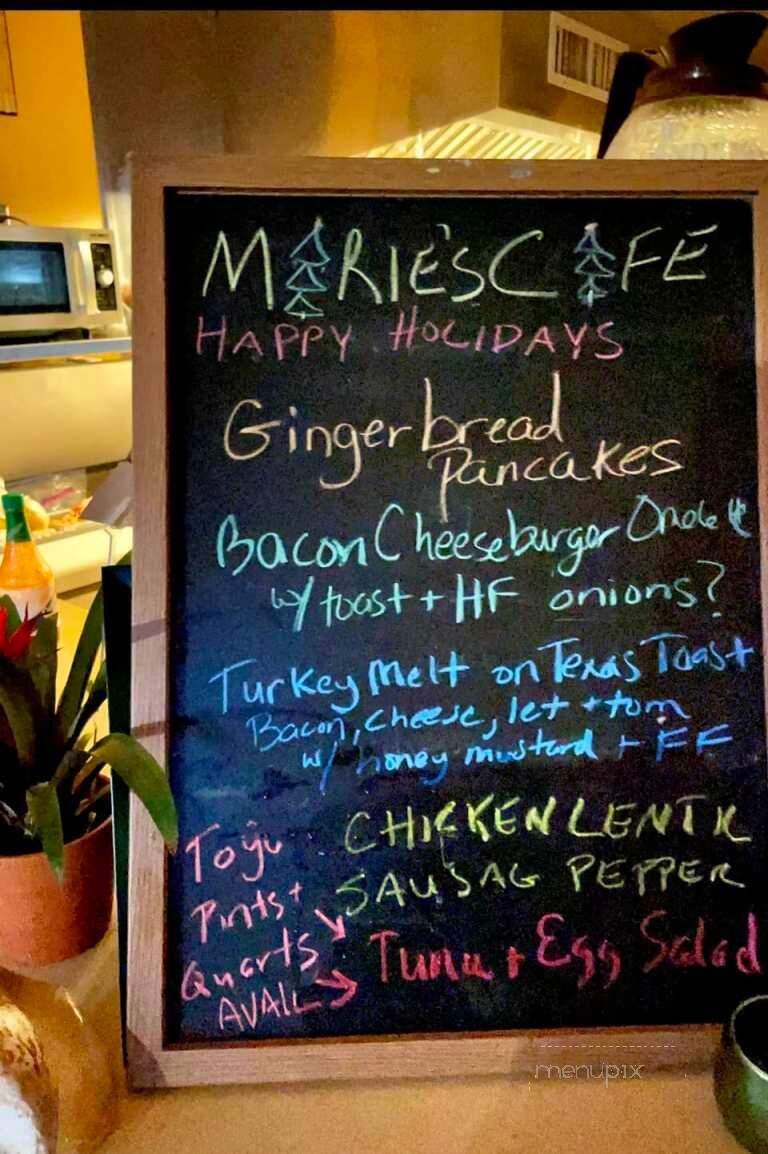 MARIE'S CAFE
HAPPY HOLIDAYS
Gingerbread
Pancakes
Bacon Cheeseburger
w/ toast + HF onions?
Turkey Melt on Texas Toast
Bacon, cheese, let + tom
w/ honey mustard + FF
CHICKEN LENTIL
SAUSAG PEPPER
Tuna + Egg Salad
Pints +
Quarts
AVAIL
menupix